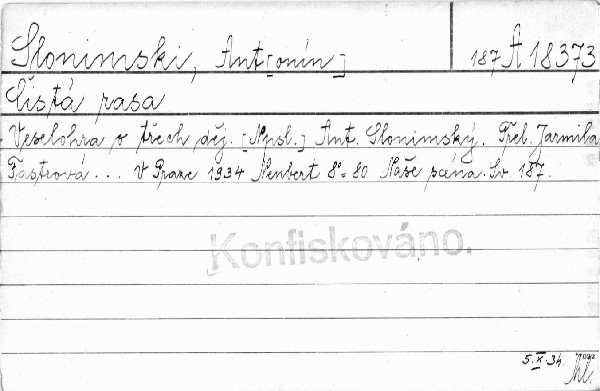 Slonimski, Ant[onín] 187 A 18373
Čistá rasa
Veselohra o třech děj. [Npsl.] Ant. Slonimský. Přel. Jarmila
Fastrová... V Praze 1934 Neubert 8°- 80 Naše scéna. Sv. 187.
Konfiskováno.
5.X.34.